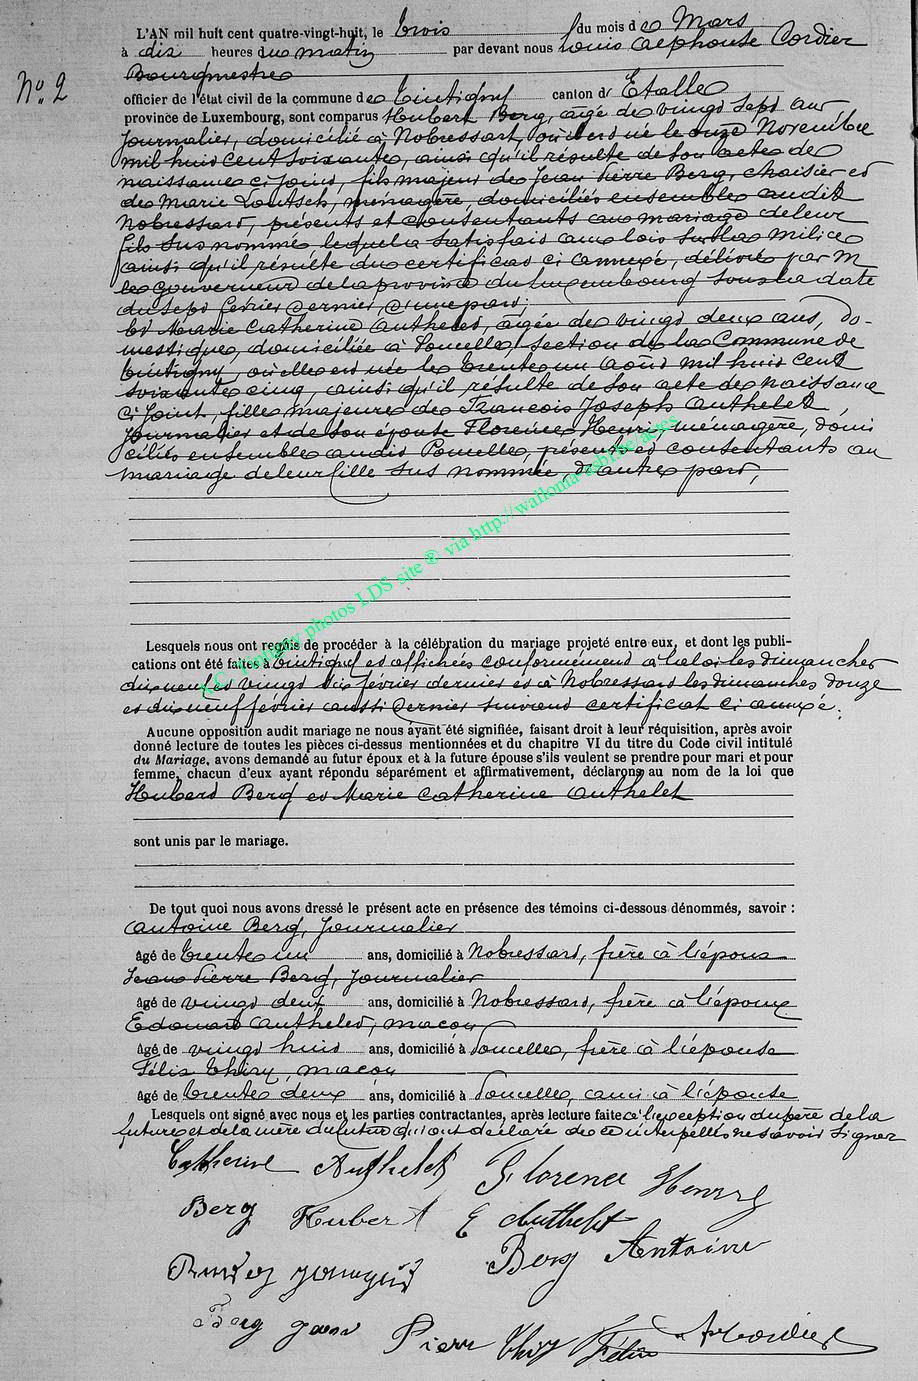 L'AN mil huit cent quatre-vingt-huit, le trois du mois de Mars
à dix heures du matin par devant nous Louis Alphonse Cordier
Bourgmestre
N° 2
officier de l'état civil de la commune de Tintigny canton d' Etalle
province de Luxembourg, sont comparus Hubert Berg, âgé de vingt sept ans
journalier, domicilié à Nobressart, où il est né le onze Novembre
mil huit cent soixante, ainsi qu'il résulte de son acte de
naissance ci joint, fils majeur de Jean Pierre Berg, chaisier et
de Marie Loutsch, ménagère, domiciliés ensemble audit
Nobressart, présents et consentants au mariage de leur
fils sus nommé lequel a satisfait aux lois sur la milice
ainsi qu'il résulte du certificat ci annexé, délivré par M
le gouverneur de la province du Luxembourg sous la date
du sept février dernier, d'une part;
Et Marie Catherine Authelet, âgée de vingt deux ans, do-
mestique, domiciliée à Poncelle, section de la Commune de
Tintigny, où elle est née le trente un Août mil huit cent
soixante cinq, ainsi qu'il résulte de son acte de naissance
ci joint, fille majeure de François Joseph Authelet,
journalier et de son épouse Florence Henri, ménagère, domi
ciliés ensemble audit Poncelle, présents et consentants au
mariage de leur fille sus nommée, d'autre part,
A.C. Tintigny photos LDS site ® via http://wallonia-asbl.be/actes
Lesquels nous ont requis de procéder à la célébration du mariage projeté entre eux, et dont les publi-
cations ont été faites à Tintigny et affichées conformément à la loi les dimanches
dix neuf et vingt six février dernier et à Nobressart les dimanches douze
et dix neuf février aussi dernier suivant certificat ci annexé.
Aucune opposition audit mariage ne nous ayant été signifiée, faisant droit à leur réquisition, après avoir
donné lecture de toutes les pièces ci-dessus mentionnées et du chapitre VI du titre du Code civil intitulé
du Mariage, avons demandé au futur époux et à la future épouse s'ils veulent se prendre pour mari et pour
femme, chacun d'eux ayant répondu séparément et affirmativement, déclarons au nom de la loi que
Hubert Berg et Marie Catherine Authelet
sont unis par le mariage.
De tout quoi nous avons dressé le présent acte en présence des témoins ci-dessous dénommés, savoir :
Antoine Berg, journalier
âgé de trente un ans, domicilié à Nobressart, frère à l'époux
Jean Pierre Berg, journalier
âgé de vingt deux ans, domicilié à Nobressart, frère à l'époux
Edouard Authelet, maçon
âgé de vingt huit ans, domicilié à Poncelle, frère à l'épouse
Félix Thiry, maçon
âgé de trente deux ans, domicilié à Poncelle, ami à l'épouse
Lesquels ont signé avec nous et les parties contractantes, après lecture faite à l'exception du père de la
future et de la mère du futur qui ont déclaré de ce interpellés ne savoir signer
Catherine Authelet Florence Henry
Berg Hubert E Authelet
Berg Antoine
Berg Jean Pierre Thiry Félix A Cordier